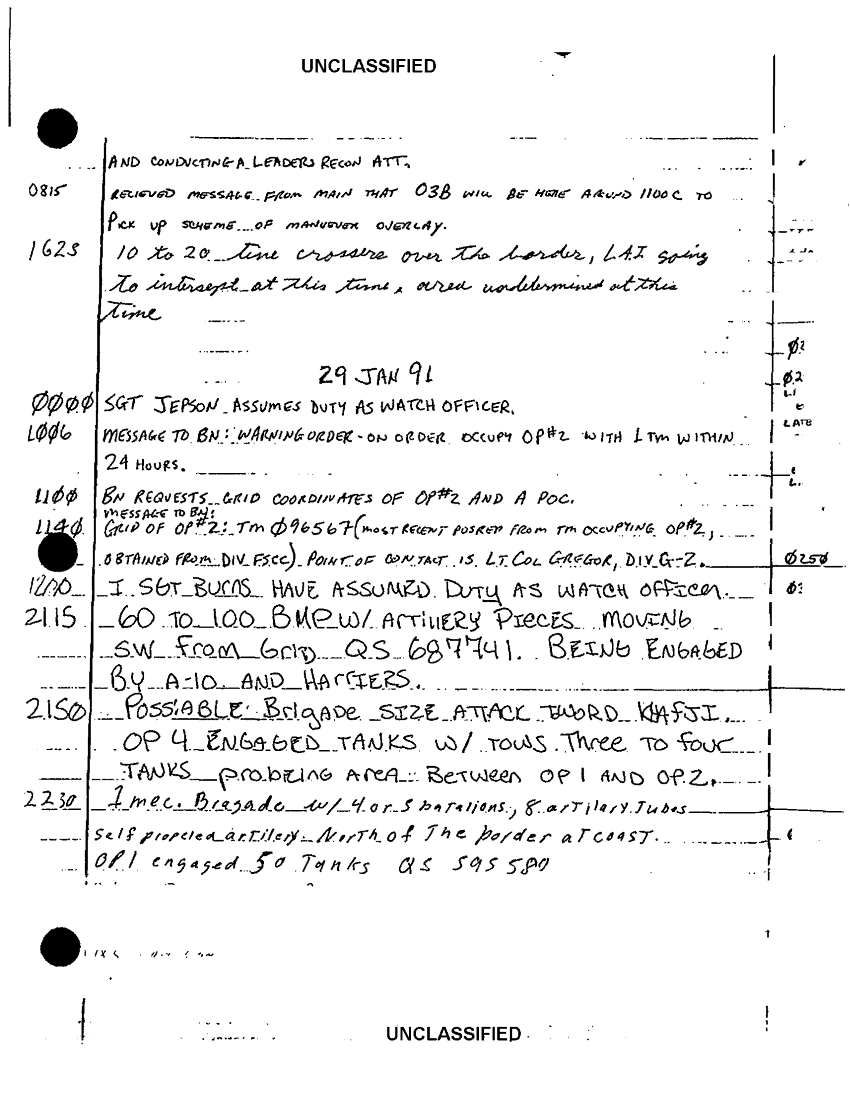 UNCLASSIFIED
AND CONDUCTING A LEADERS RECON ATT.
0815 RECIEVED MESSAGE FROM MAIN THAT O3B WILL BE HERE AROUND 1100C TO
PICK UP SCHEME OF MANUEVER OVERLAY.
1623 10 to 20 line crossers over the border, LAI going
to intersept at this time, area undetermined at this
time
29 JAN 91
0000 SGT JEPSON ASSUMES DUTY AS WATCH OFFICER.
1006 MESSAGE TO BN: WARNING ORDER - ON ORDER OCCUPY OP#2 WITH 1 TM WITHIN
24 HOURS.
1100 BN REQUESTS GRID COORDINATES OF OP#2 AND A POC.
MESSAGE TO BN:
1140 GRID OF OP#2: TM 096567 (MOST RECENT POSREP FROM TM OCCUPYING OP#2,
OBTAINED FROM DIV FSCC) POINT OF CONTACT IS LT. COL GREGOR, DIV G-2.
1200 I SGT BURNS HAVE ASSUMED DUTY AS WATCH OFFICER.
2115 60 TO 100 BMP W/ ARTILLERY PIECES MOVING
SW FROM GRID QS 687741. BEING ENGAGED
BY A-10 AND HARRIERS.
2150 POSSIABLE BRIGADE SIZE ATTACK TWORD KHAFJI.
OP 4 ENGAGED TANKS W/ TOWS. Three TO FOUR
TANKS probeing AREA BETWEEN OP 1 AND OP 2.
2230 1 mec. Bragade w/ 4 or 5 bataljons, 8 artilary Tubes
Self propeled artilery North of The border at COAST.
OP1 engaged 50 Tanks QS 595580
02
02
LATE
0250
UNCLASSIFIED